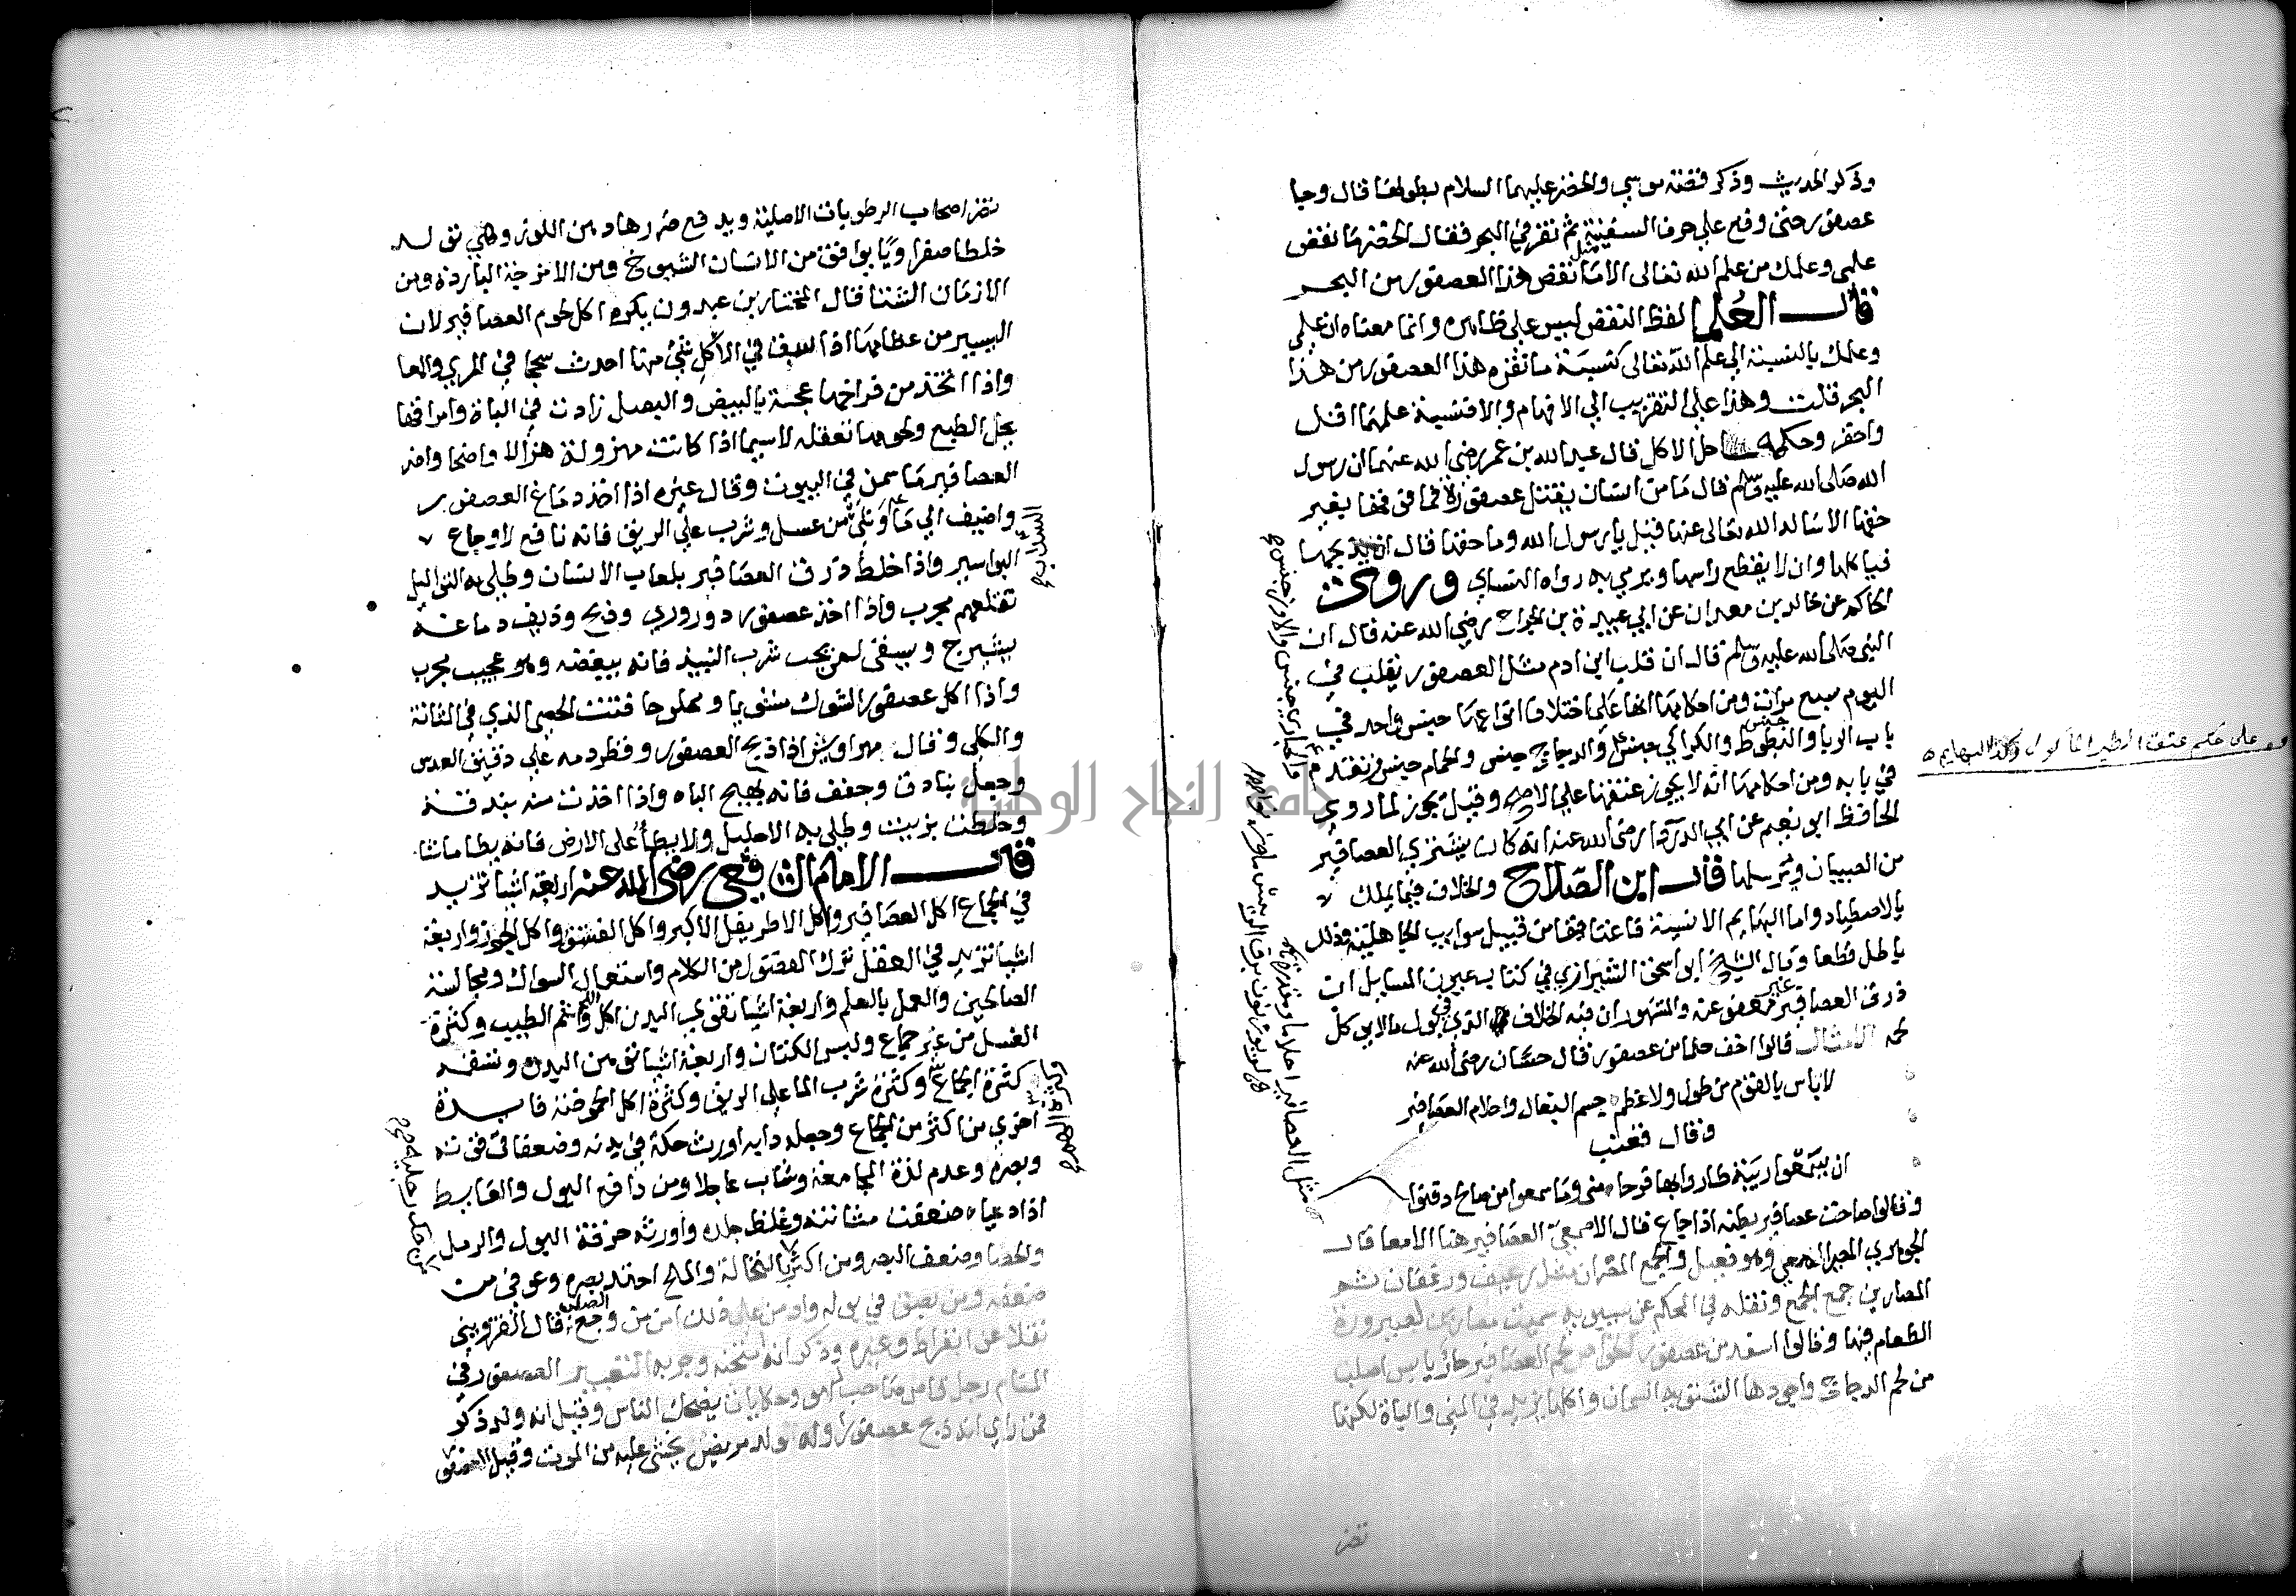 وذكر الحديث وذكر قصة موسي والخضر عليهما السلام بطولها قال وجا
عصفور حتى وقع علي حرف السفينة ثم نقر في البحر فقال الخضر ما نقص
علمي وعلمك من علم الله تعالى الا مثل ما نقص هذا العصفور من البحر
قال العلما لفظ النقص ليس علي ظاهره وانما معناه ان علمي
وعلمك بالنسبة الي علم الله تعالى كنسبة ما نقره هذا العصفور من هذا
البحر قلت وهذا علي التقريب الي الافهام والا فنسبة علمهما اقل
واحقر وحكمه حل الاكل قال عبد الله بن عمر رضي الله عنهما ان رسول
الله صلى الله عليه وسلم قال ما من انسان يقتل عصفورة فما فوقها بغير
حقها الا ساله الله تعالى عنها قيل يا رسول الله وما حقها قال ان يذبحها
فياكلها وان لا يقطع راسها ويرمي به رواه النساي وروى
الحاكم عن خالد بن معدان عن ابي عبيدة بن الجراح رضي الله عنه قال ان
النبي صلى الله عليه وسلم قال ان قلب ابن ادم مثل العصفور يتقلب في
اليوم سبع مرات ومن احكامها انها علي اختلاف انواعها جنس واحد في
باب الربا والبطوط جنس والكراكي جنس والدجاج جنس والحمام جنس وتقدم
في بابه ومن احكامها انه لا يجوز عتقها علي الاصح وقيل يجوز لما روي
الحافظ ابو نعيم عن ابي الدردا رضي الله عنه انه كان يشتري العصافير
من الصبيان ويرسلها قال ابن الصلاح والخلاف فيما يملك
بالاصطياد واما البهايم الانسية فاعتاقها من قبيل سوايب الجاهلية وذلك
باطل قطعا وقال الشيخ ابو اسحق الشيرازي في كتاب عيون المسايل ان
ذرق العصافير معفو عنه والمشهور ان فيه الخلاف الذي في بول مالا يوكل
لحمه الامثال قالوا اخف حلما من عصفور قال حسان رضي الله عنه
لا باس بالقوم من طول ولا عظم جسم البغال واحلام العصافير
وقال قعنب
ان يسمعوا ريبة طاروا بها فرحا مني وما سمعوا من صالح دفنوا
وقالوا صاحت عصافير بطنه اذا جاع قال الاصمعي العصافير هنا الامعا قال
الجوهري المصير المعي وهو فعيل والجمع المصران مثل رغيف ورغفان ثم
المصارين جمع الجمع ونقله في المحكم عن سيبويه سميت مصارين لمصيرورة
الطعام فيها وقالوا اسفد من عصفور الخواص لحم العصافير حار يابس اصلب
من لحم الدجاج واجودها الشتوية السمان واكلها يزيد في المني والباة لكنها
تضر
وقف على حكم عتق الطير الماكول وكذا البهايم
تضر اصحاب الرطوبات الاصلية ويدفع ضررها دهن اللوز وهي تولد
خلطا صفراويا يوافق من الاسنان الشيوخ ومن الامزجة الباردة ومن
الازمان الشتا قال المختار بن عبدون يكره اكل لحوم العصافير لان
اليسير من عظامها اذا سبق في الاكل شئ منها احدث سحجا في المري والمعا
واذا اتخذ من فراخها عجة بالبيض والبصل زادت في الباة وامراقها
يحل الطبع ولحومها تعقله لا سيما اذا كانت مهزولة هزالا واضحا واضر
العصافير ما سمن في البيوت وقال غيره اذا اخذ دماغ العصفور
واضيف الي ما وشئ من عسل وشرب علي الريق فانه نافع لاوجاع
البواسير واذا خلط ذرق العصافير بلعاب الانسان وطلي به الثواليل
تقلعهم مجرب واذا اخذ عصفور دوروري وذبح وذيف دماغه
بشيرج وسقي لمن يحب شرب النبيذ فانه يبغضه وهو عجيب مجرب
واذا اكل عصفور الشوك مشويا ومملوحا فتت الحصى الذي في المثانة
والكلي وقال مهراريش اذا ذبح العصفور وقطر دمه علي دقيق العدس
وجعل بنادق وجفف فانه يهيج الباه واذا اخذت منه بندقة
وخلطت بزيت وطلي به الاحليل ولا يطأ علي الارض فانه يطا ما شا
قال الامام الشافعي رضي الله عنه اربعة اشيا تزيد
في الجماع اكل العصافير واكل الاطريفل الاكبر واكل الفستق واكل الجوز واربعة
اشيا تزيد في العقل ترك الفضول من الكلام واستعمال السواك ومجالسة
الصالحين والعمل بالعلم واربعة اشيا تقوي البدن اكل اللحم وشم الطيب وكثرة
الغسل من غير جماع ولبس الكتان واربعة اشيا توهن البدن وتسقمه
كثرة الجماع وكثرة شرب الما علي الريق وكثرة اكل الحموضة فايدة
اخرى من اكثر من الجماع وجعله دابه اورث حكة في بدنه وضعفا في قوته
وبصره وعدم لذة المجامعة وشاب عاجلا ومن دافع البول والغايط
اذا دعياه ضعفت مثانته وغلظ جلده واورثه حرقة البول والرمل
والحصا وضعف البصر ومن اكثر بالنخالة والملح احتد بصره وعوفي من
ضعفه ومن بصق في بوله وادمن على ذلك امن من وجع الصلب قال القزويني
نقلا عن ابقراط وغيره وذكر انه امتحنه وجربه التعبير العصفور في
المنام رجل خاص صاحب لهو وحكايات يضحك الناس وقيل انه ولد ذكر
فمن راي انه ذبح عصفورا وله ولد مريض يخشى عليه من الموت وقيل العصفور
جامعة النجاح الوطنية